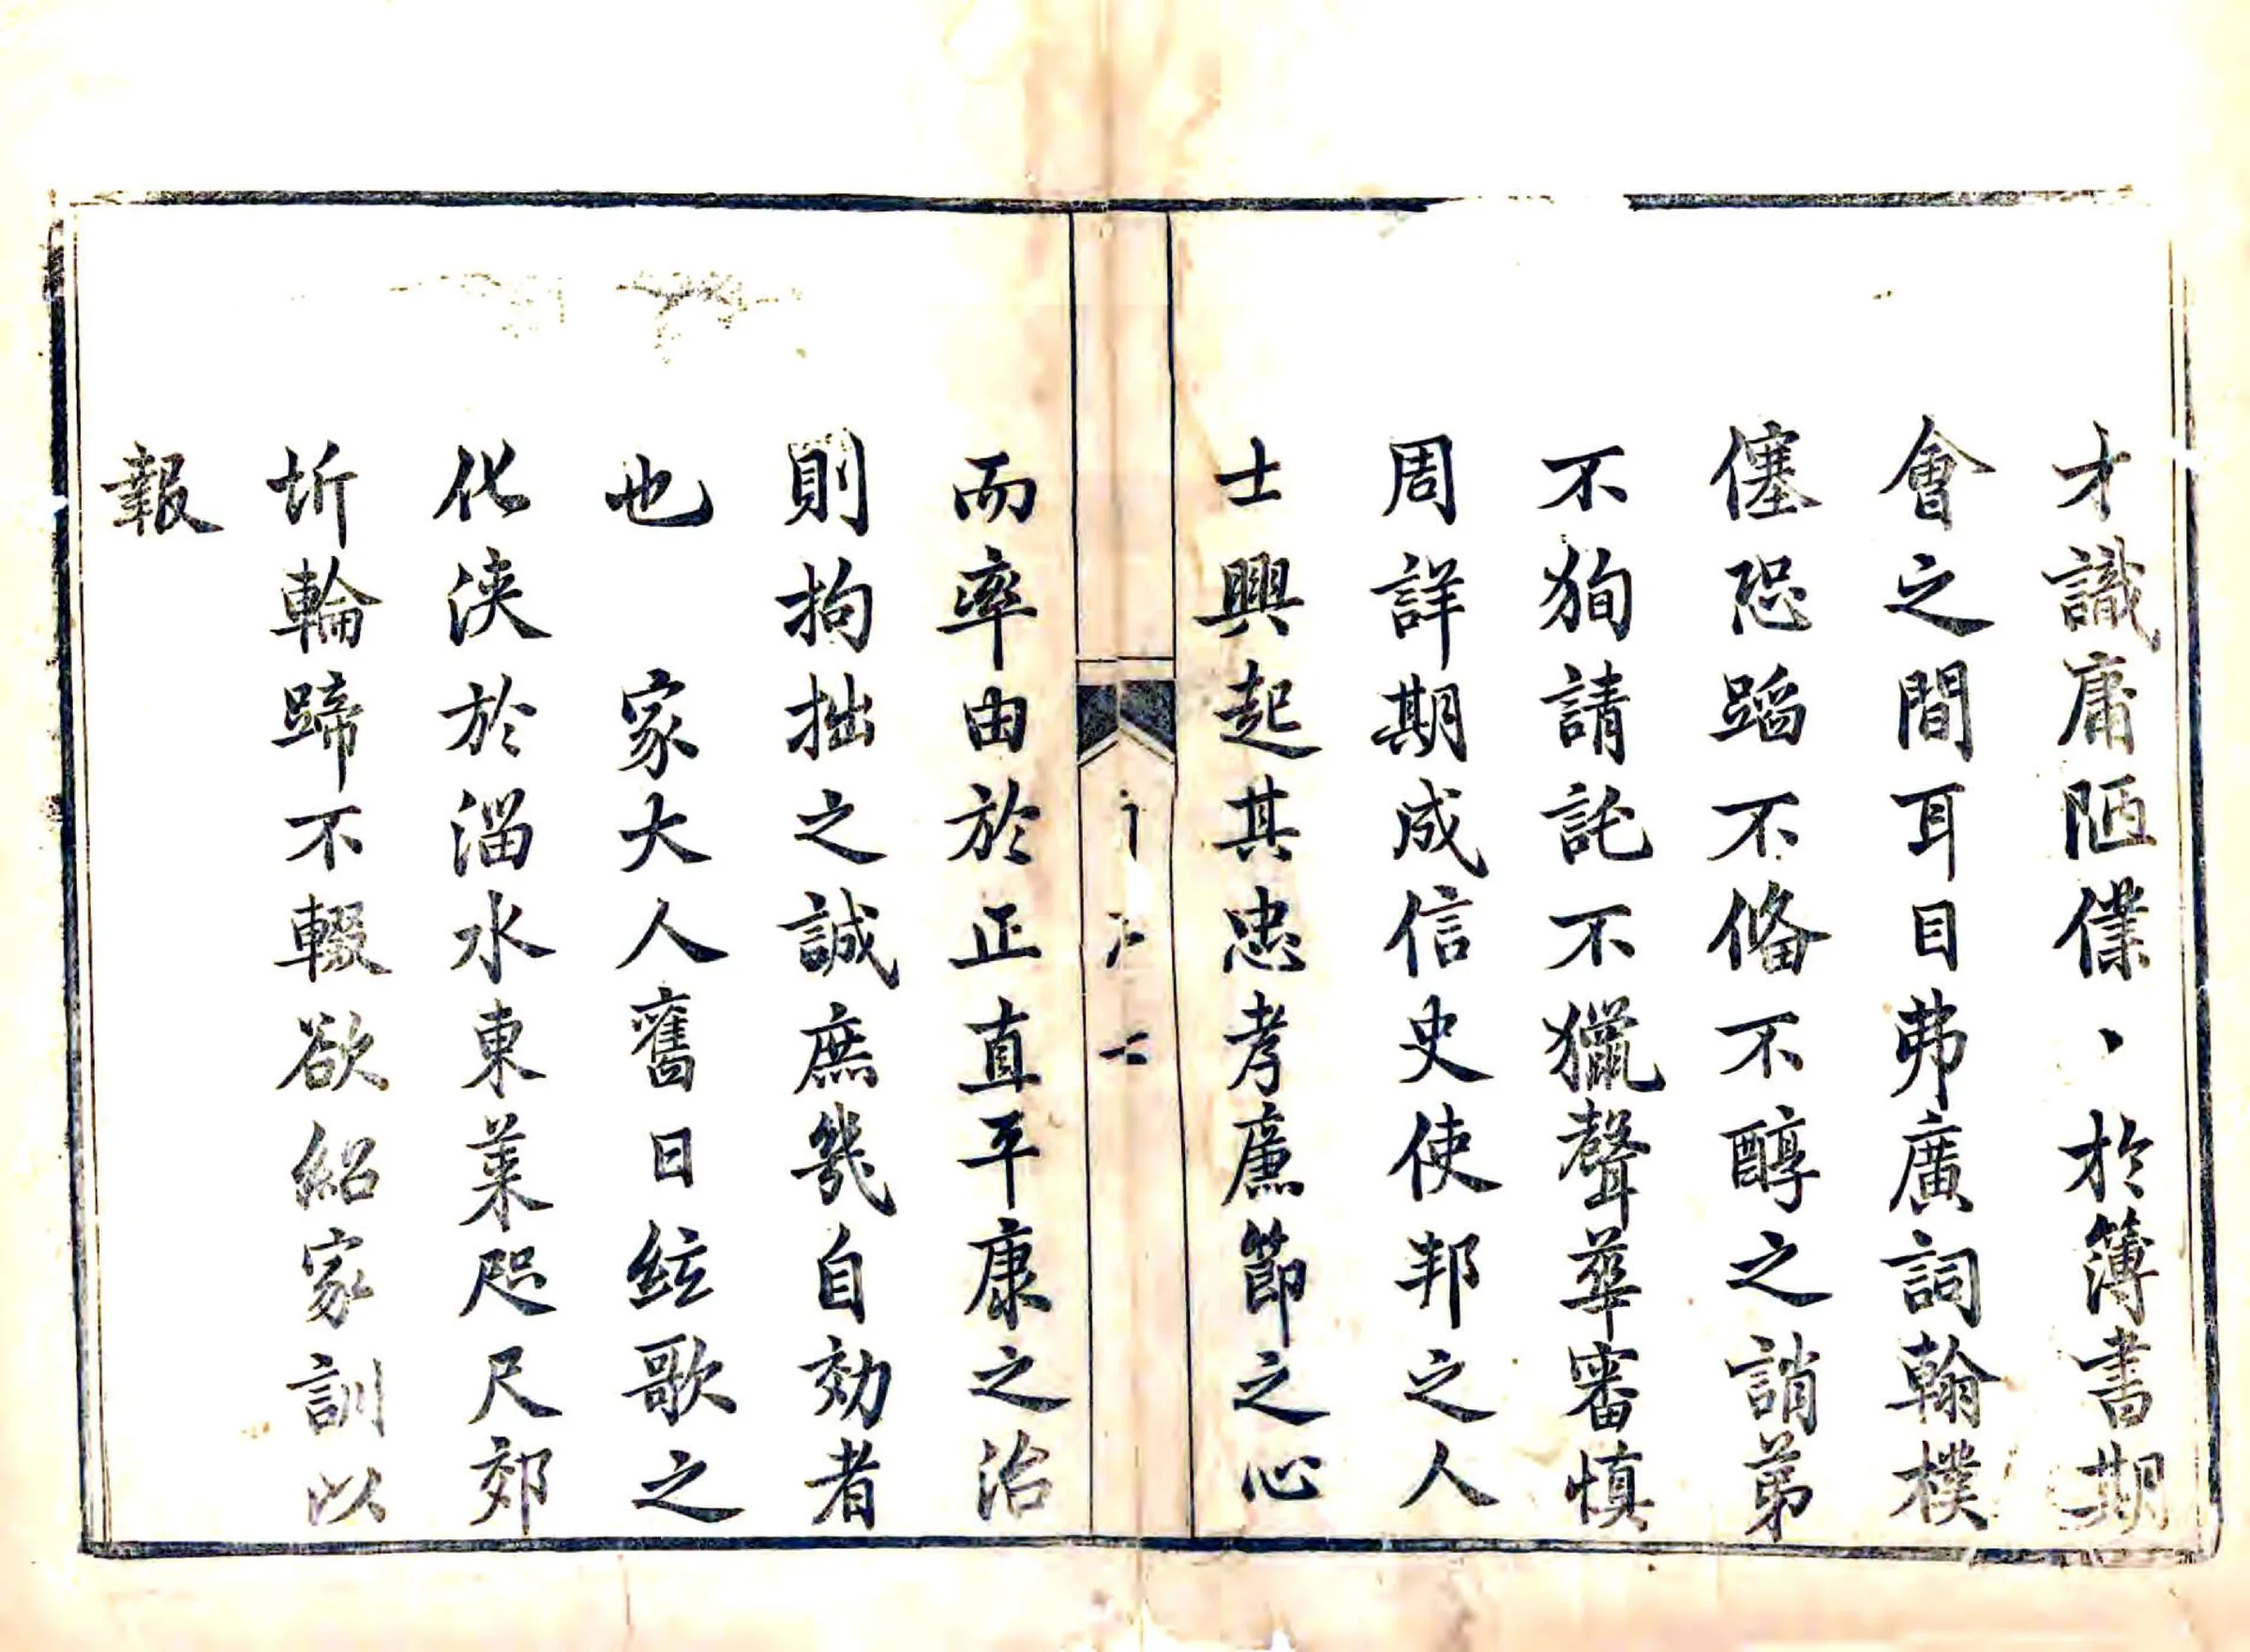 才識庸陋僕、於簿書期
會之間耳目弗廣詞翰樸
僿恐蹈不俻不醇之誚苐
不狥請託不獵聲華審慎
周詳期成信史使邦之人
士興起其忠孝廉節之心
而率由於正直平康之治
則拘拙之誠庶幾自効者
也 家大人舊日絃歌之
化浹於淄水東萊咫尺郊
圻輪蹄不輟欲紹家訓以
報